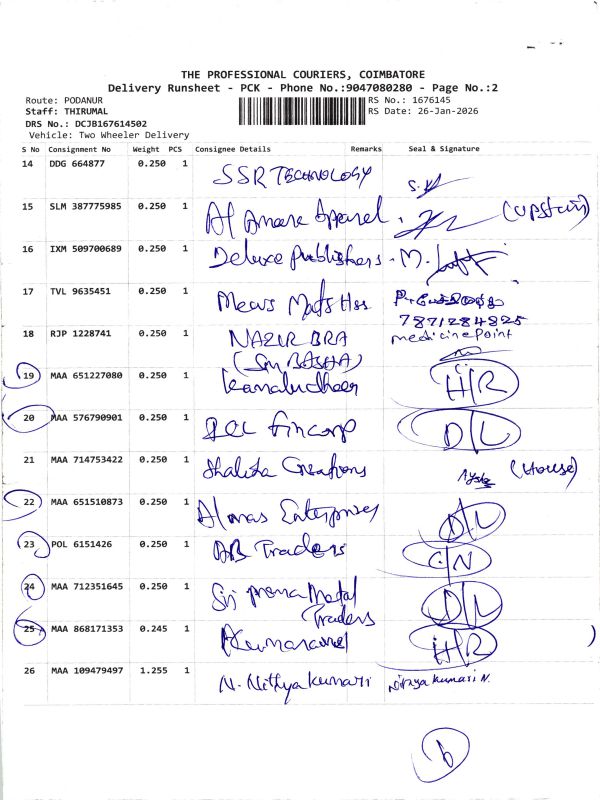 THE PROFESSIONAL COURIERS, COIMBATORE
Delivery Runsheet - PCK - Phone No.:9047080280 - Page No.:2
Route: PODANUR RS No.: 1676145
Staff: THIRUMAL RS Date: 26-Jan-2026
DRS No.: DCJB167614502
Vehicle: Two Wheeler Delivery
S No Consignment No Weight PCS Consignee Details Remarks Seal & Signature
14 DDG 664877 0.250 1 SSR TECHNOLOGY
15 SLM 387775985 0.250 1 Al Ameen Apparel (upstair)
16 IXM 509700689 0.250 1 Deluxe Publishers M.
17 TVL 9635451 0.250 1 Hss
7871284825
18 RJP 1228741 0.250 1 NAZIR BRA medicine point
(SM BASHA)
19 MAA 651227080 0.250 1 Kamaludheen H/R
20 MAA 576790901 0.250 1 Fincorp D/L
21 MAA 714753422 0.250 1 Creations (House)
22 MAA 651510873 0.250 1 Almas Enterprises D/L
23 POL 6151426 0.250 1 AB Traders C/N
24 MAA 712351645 0.250 1 Sri Prema Metal D/L
Traders
25 MAA 868171353 0.245 1 H/R
26 MAA 109479497 1.255 1 N. Nithyakumari Nithyakumari N.
6